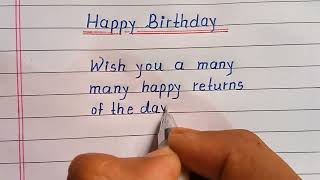 Happy Birthday
Wish you a many
many happy returns
of the day